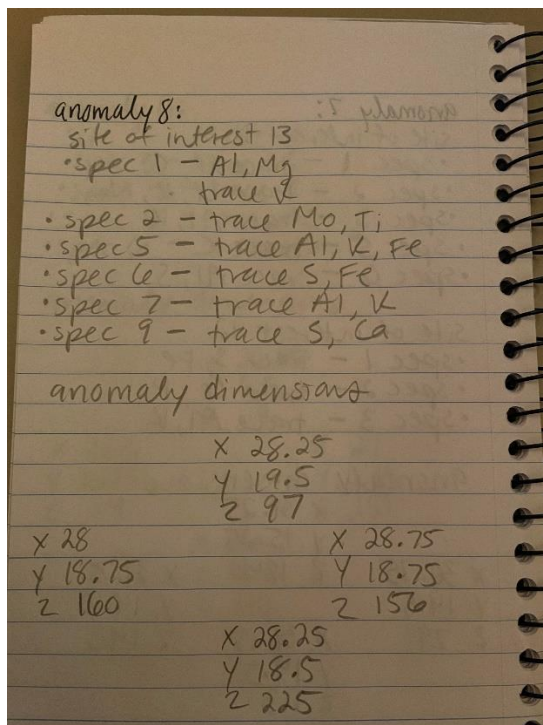 anomaly 8:
site of interest 13
• spec 1 – Al, Mg
trace K
• spec 2 – trace Mo, Ti
• spec 5 – trace Al, K, Fe
• spec 6 – trace S, Fe
• spec 7 – trace Al, K
• spec 9 – trace S, Ca
anomaly dimensions
X 28.25
Y 19.5
Z 97
X 28
Y 18.75
Z 160
X 28.75
Y 18.75
Z 156
X 28.25
Y 18.5
Z 225